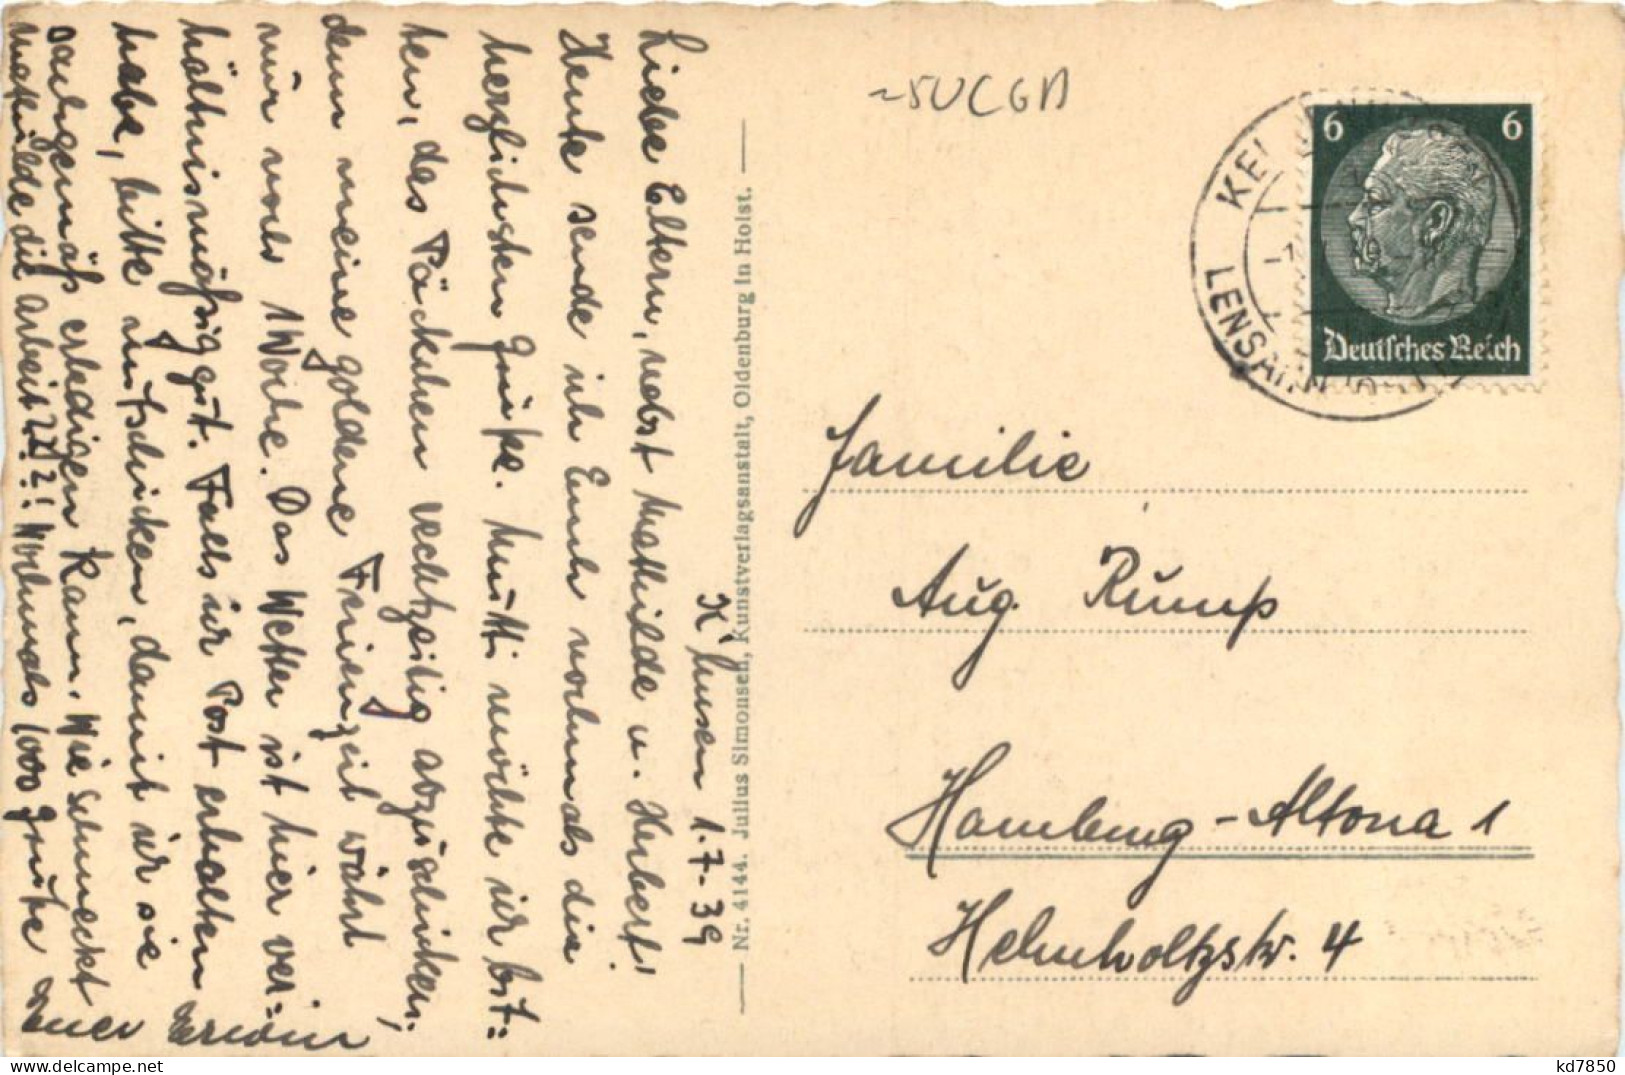 K'husen 1.7-39
Liebe Eltern, nebst Mathilde u. Herbert!
Heute sende ich Euch nochmals die
herzlichsten Grüße. Mutti möchte ich bit=
ten, das Päckchen rechtzeitig abzuschicken,
denn meine goldene Ferienzeit währt
nur noch 1 Woche. Das Wetter ist hier ver=
hältnismäßig gut. Falls ich Post erhalten
habe, bitte aufschicken, damit ich sie
sachgemäß erledigen kann. Wie schmeckt
Mathilde die Arbeit??? Nochmals 1000 Grüße
Euer Erwin
Nr. 4144. Julius Simonsen, Kunstverlagsanstalt, Oldenburg in Holst.
6 6
Deutsches Reich
LENSAHN
Familie
Aug. Rump
Hamburg-Altona 1
Helmholtzstr. 4
kd7850